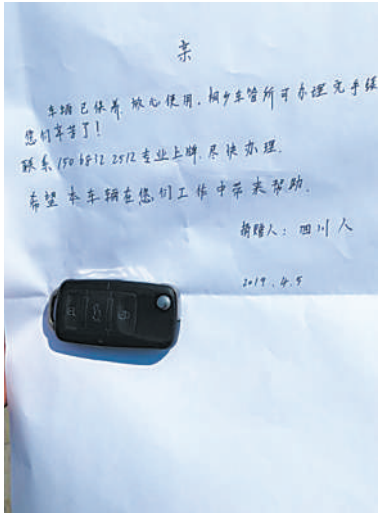 亲
车辆已保养.放心使用.桐乡车管所可办理完手续
您们辛苦了!
联系150 6832 2512专业上牌.尽快办理.
希望本车辆在您们工作中带来帮助.
捐赠人:四川人
2019.4.5